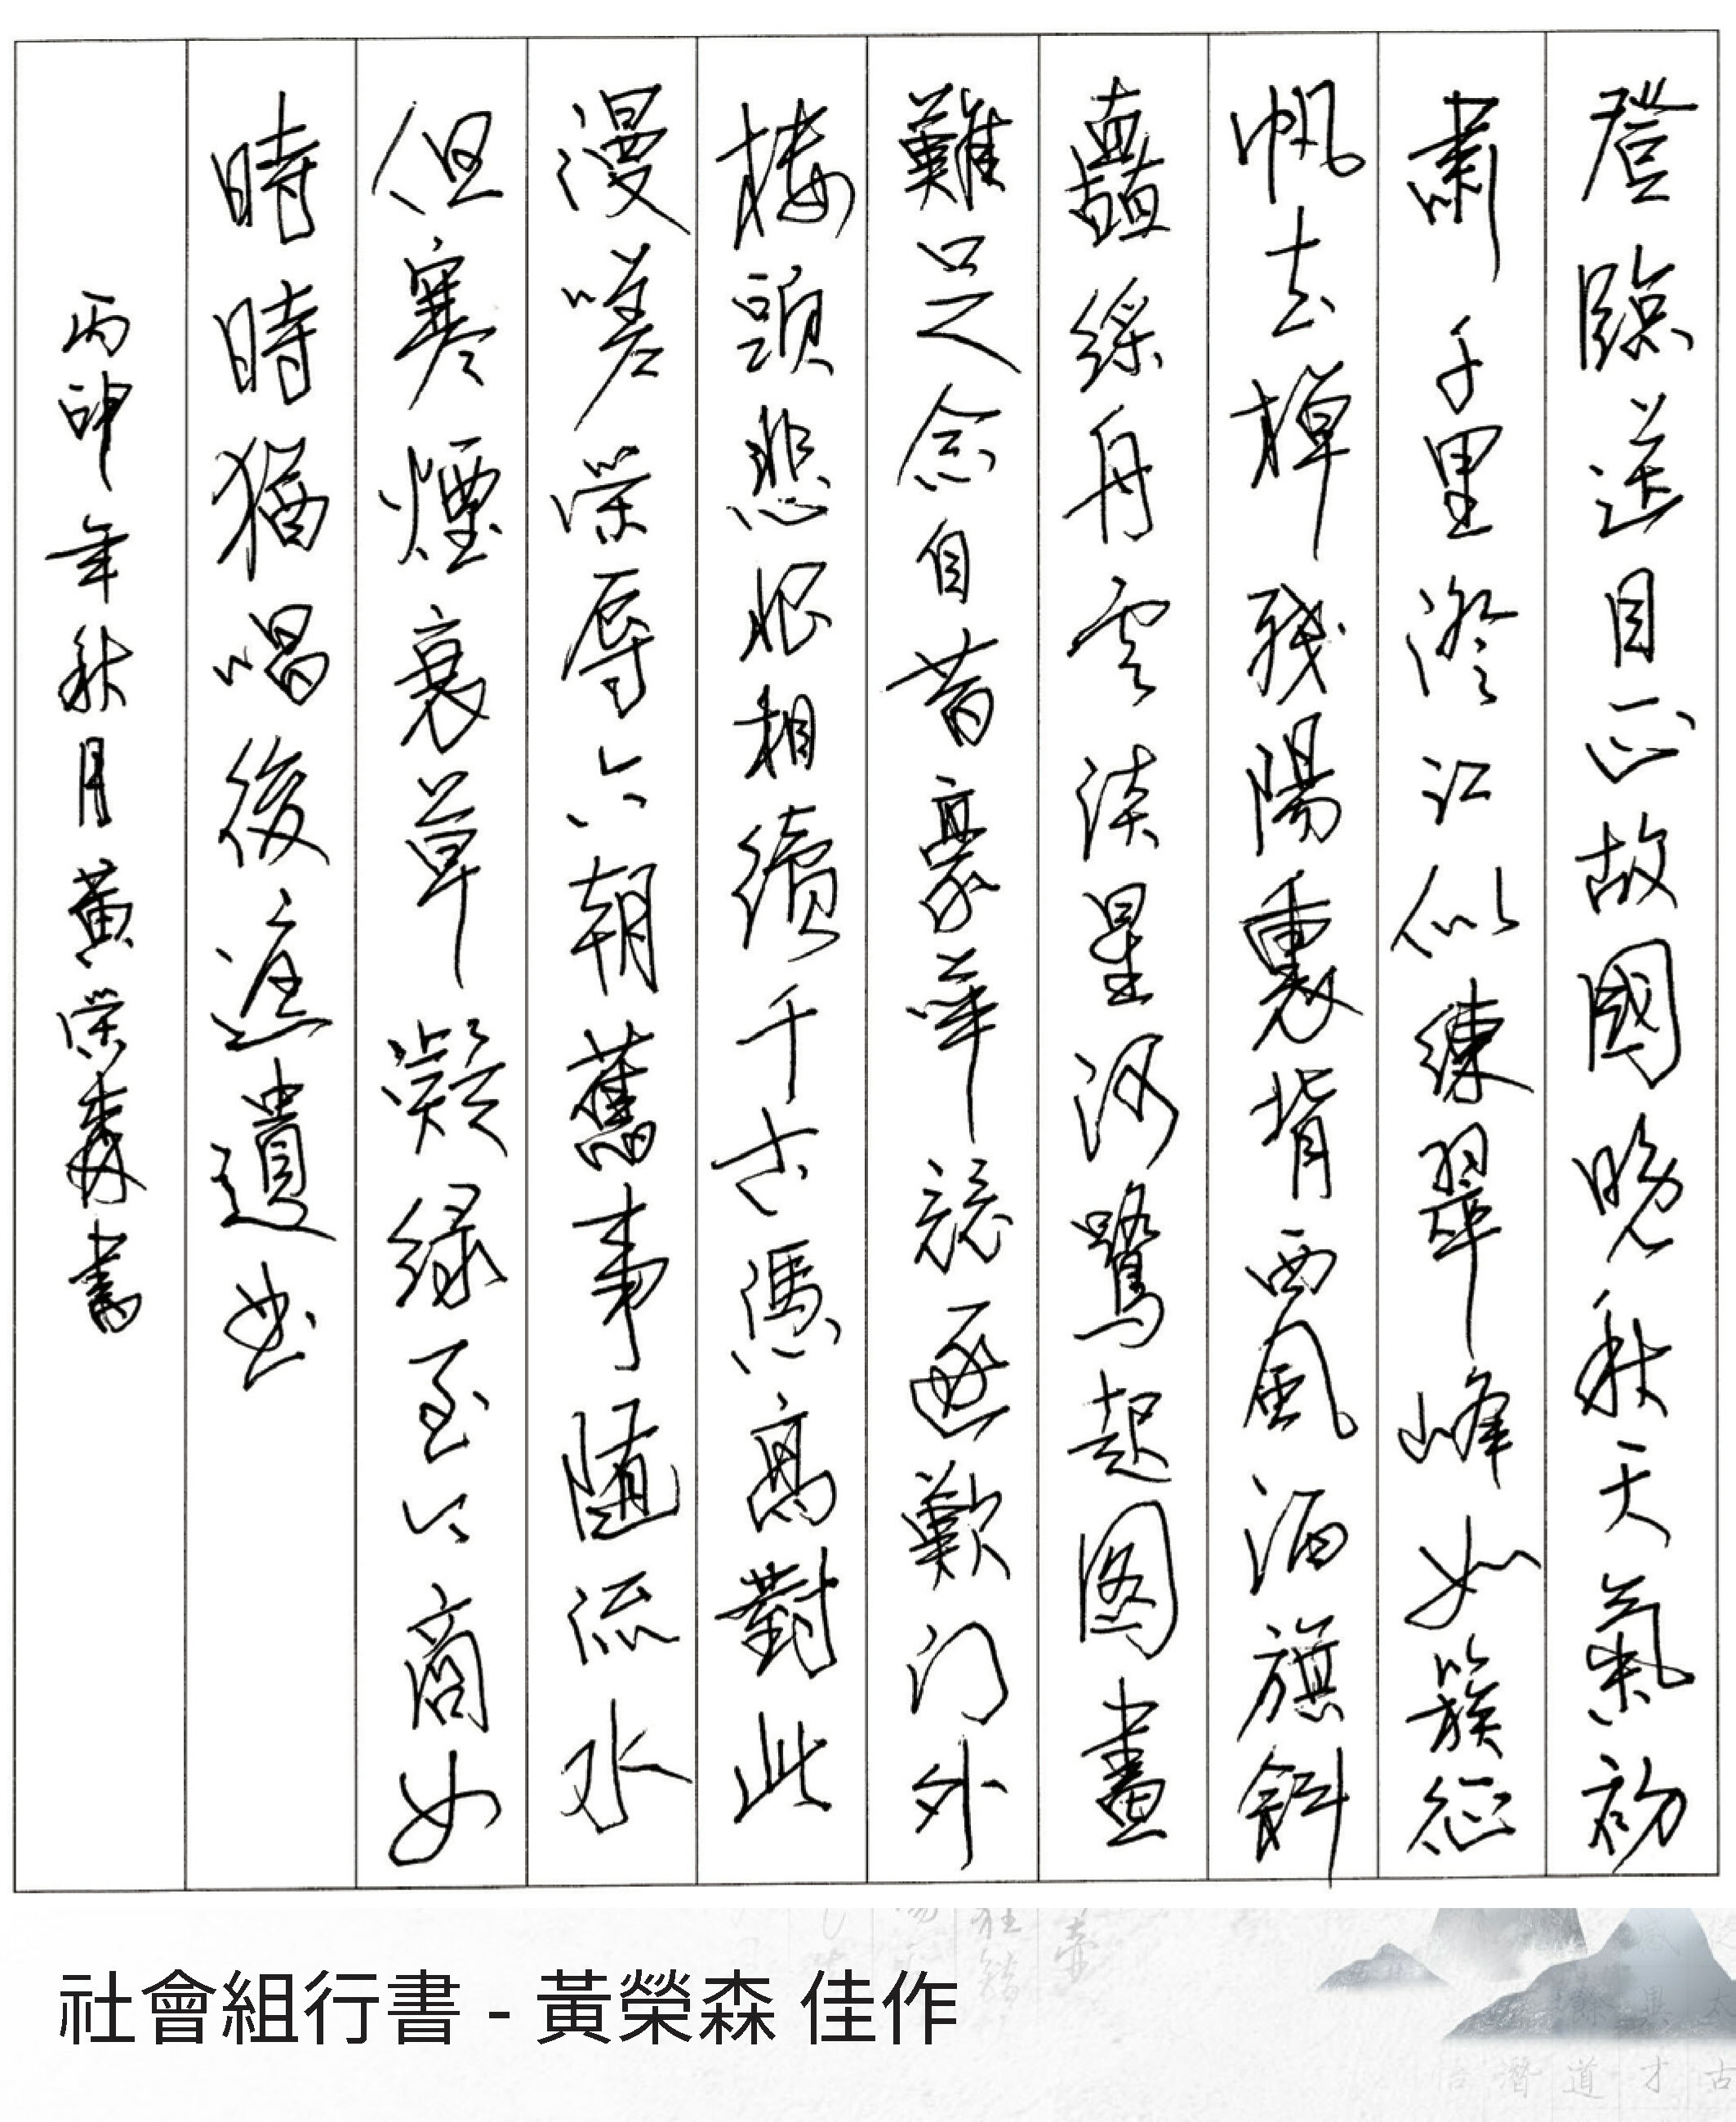 登臨送目正故國晚秋天氣初
肅千里澄江似練翠峰如簇征
帆去棹殘陽裏背西風酒旗斜
矗綵舟雲淡星河鷺起图畫
難足念自昔豪華競逐歎门外
樓頭悲恨相續千古憑高對此
漫嗟榮辱六朝舊事隨流水
但寒煙衰草凝綠至今商女
時時猶唱後庭遺曲
丙申年秋月黃榮森書
社會組行書 - 黃榮森 佳作